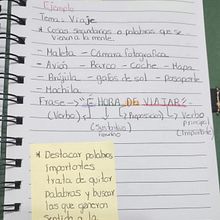 Ejemplo
Tema: Viaje
* Cosas secundarias o palabras que se
vienen a la mente.
- Maleta - Cámara fotografica
- Avión - Barco - Coche - Mapa
- Brújula - gafas de sol - Pasaporte
- Mochila
Frase - "É HORA DE VIAJAR"
(Verbo) (Preposición) Verbo
(Sustantivo) principal
(Importante)
* Destacar palabras
importantes
trata de quitar
palabras y buscar
las que generen
sentido a la